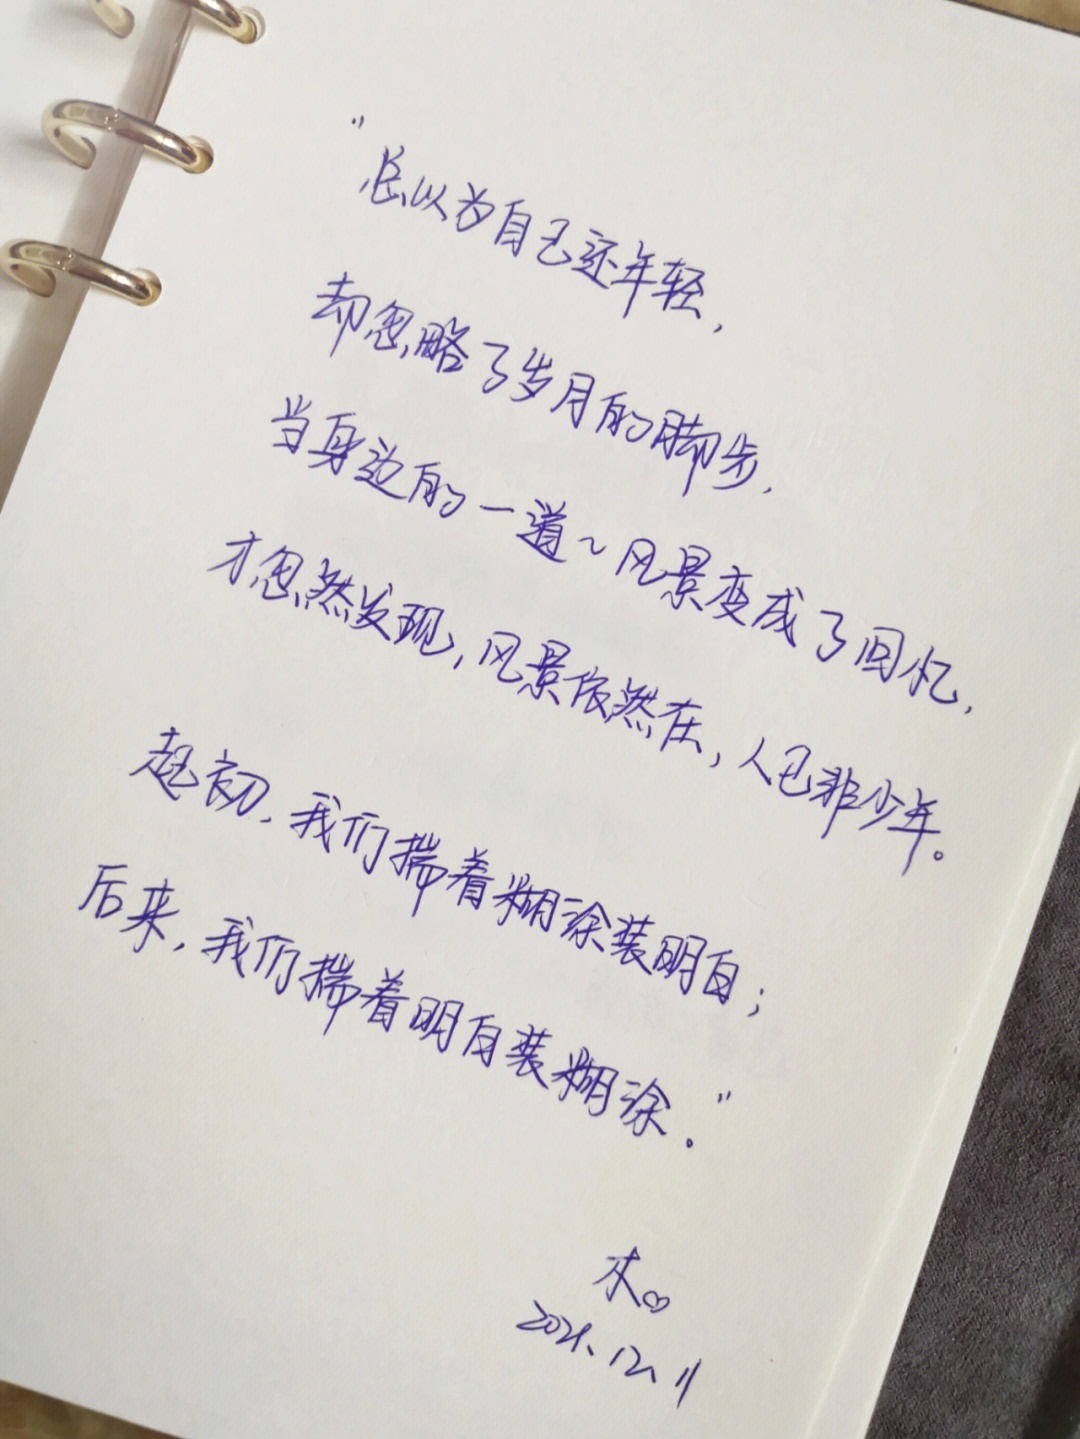 "总以为自己还年轻,
却忽略了岁月的脚步.
当身边的一道~风景变成了回忆,
才忽然发现,风景依然在,人已非少年。
起初,我们揣着糊涂装明白;
后来,我们揣着明白装糊涂."
木♡
2021.12.11